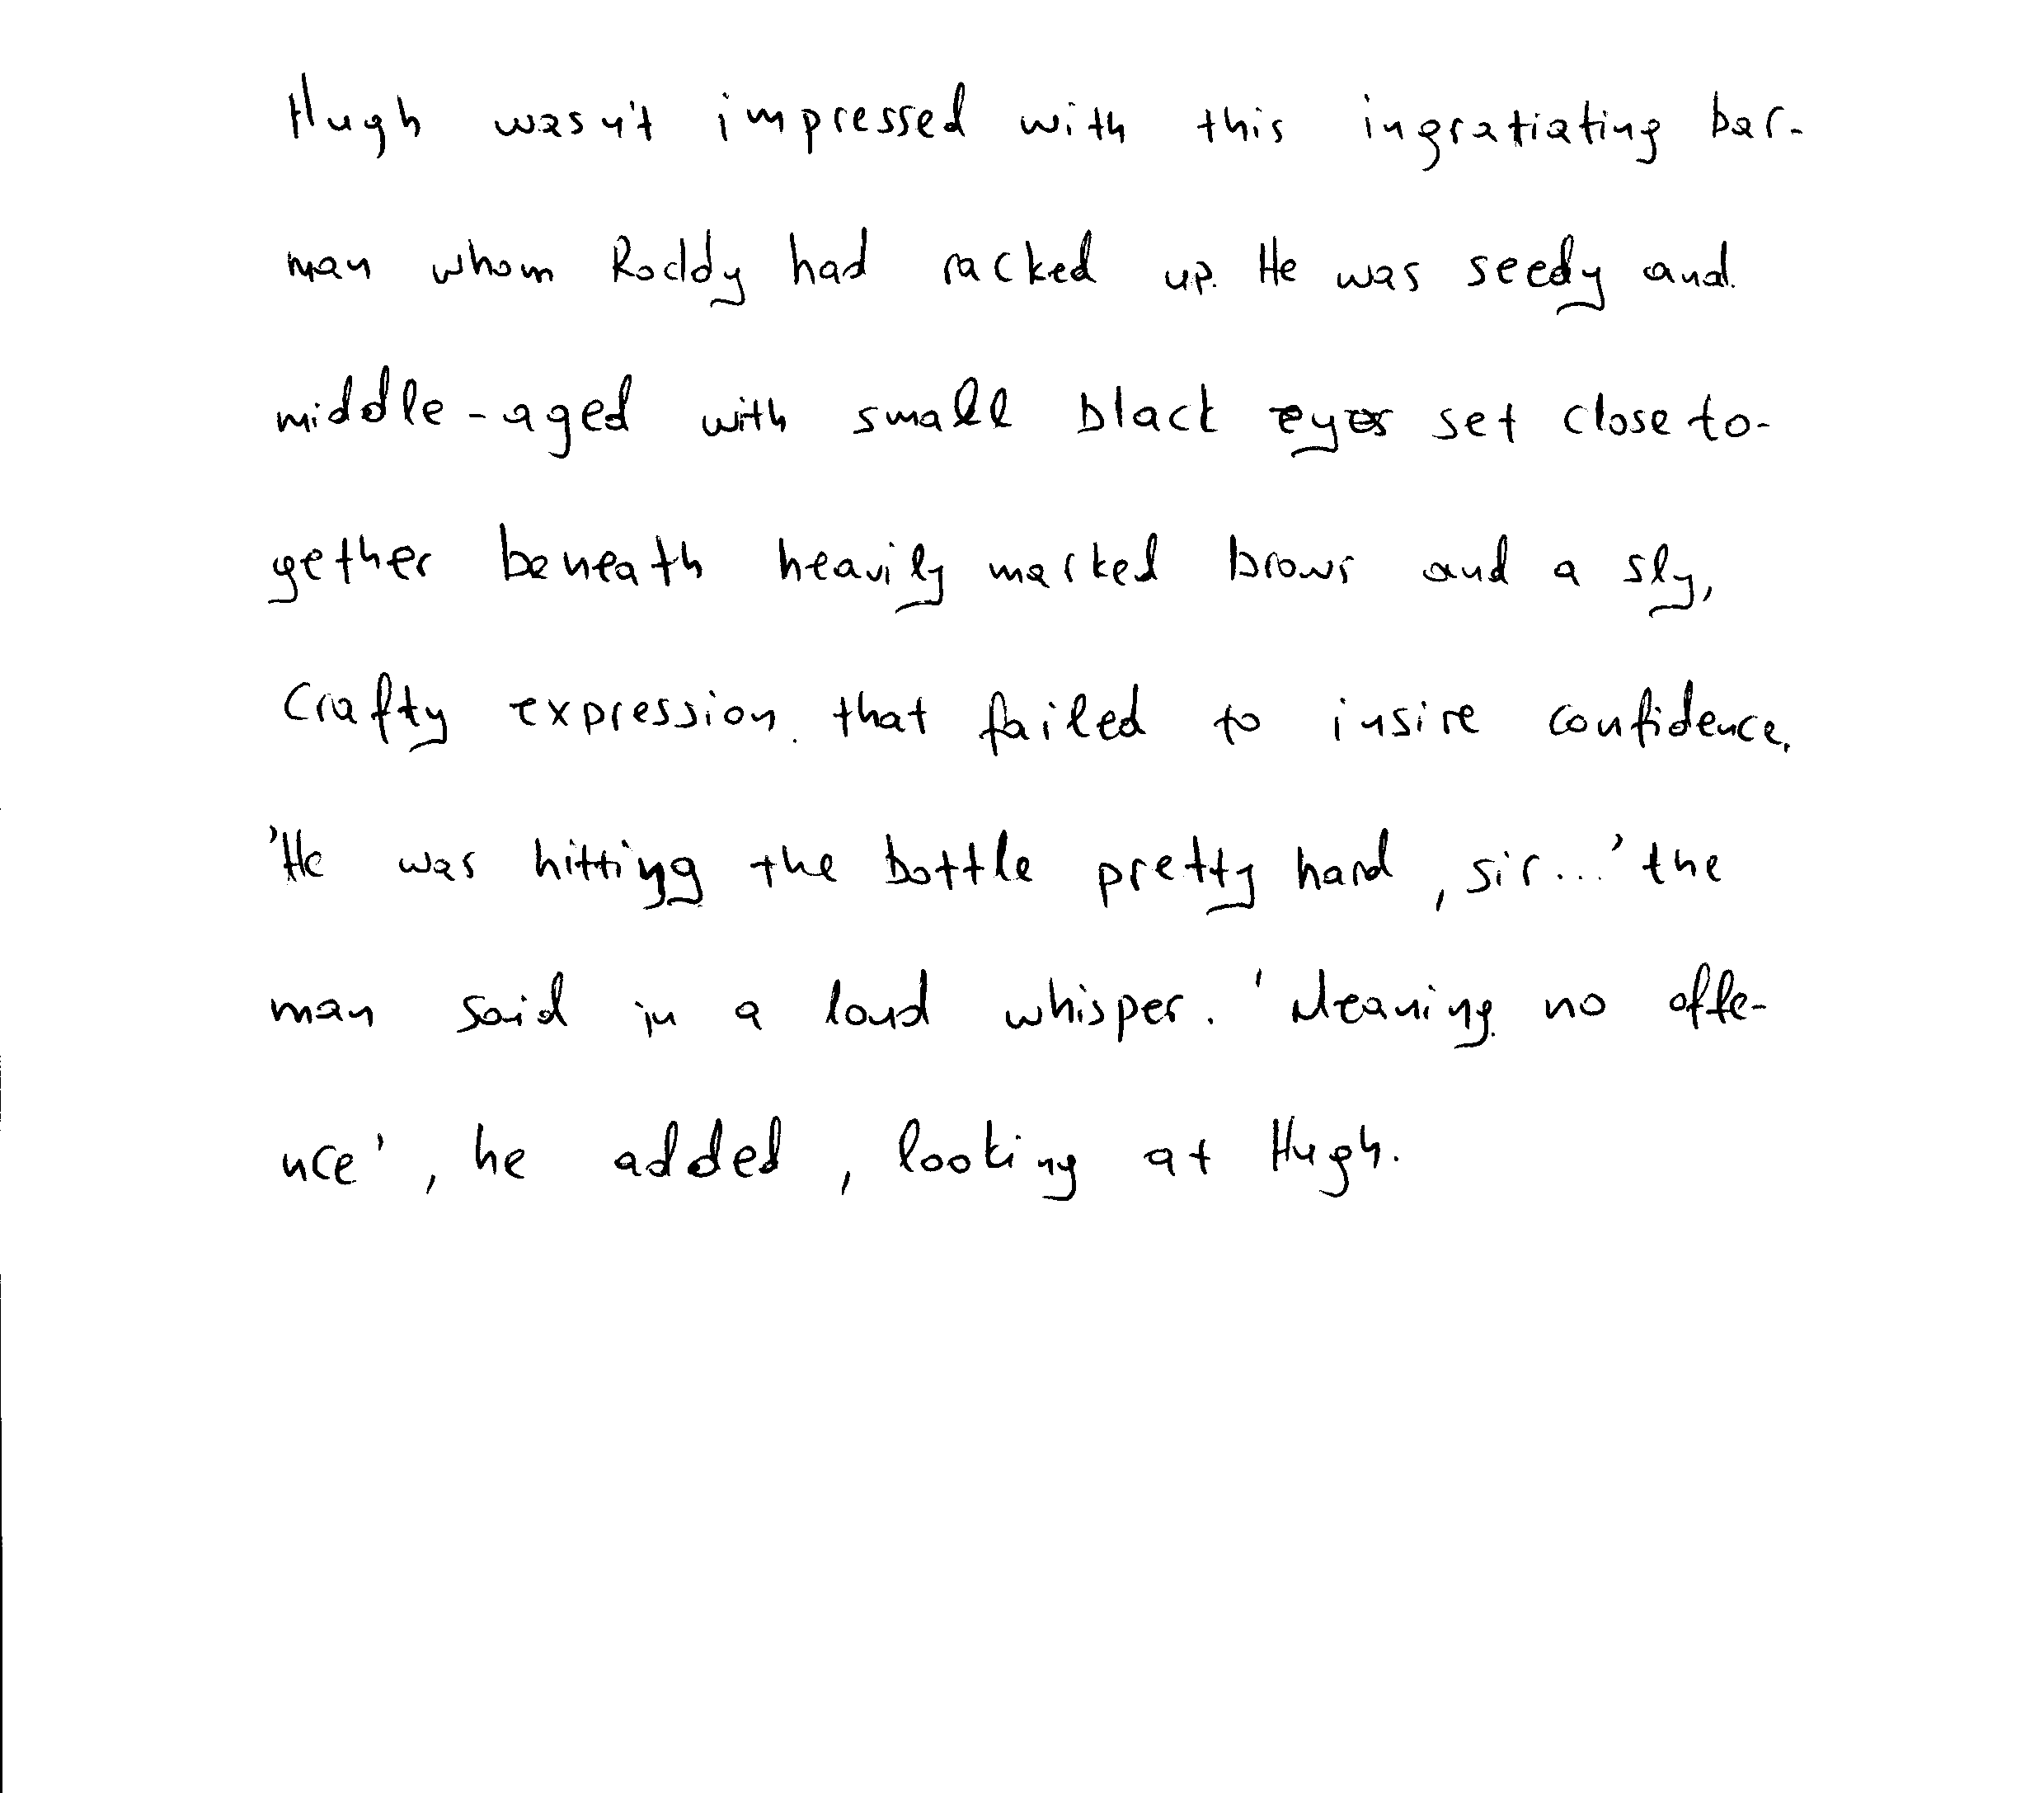 Hugh wasn't impressed with this ingratiating bar-
man whom Roddy had racked up. He was seedy and
middle-aged with small black eyes set close to-
gether beneath heavily marked brows and a sly,
crafty expression that failed to insire confidence.
'He was hitting the bottle pretty hard, sir...' the
man said in a loud whisper. 'Meaning no offe-
nce', he added, looking at Hugh.